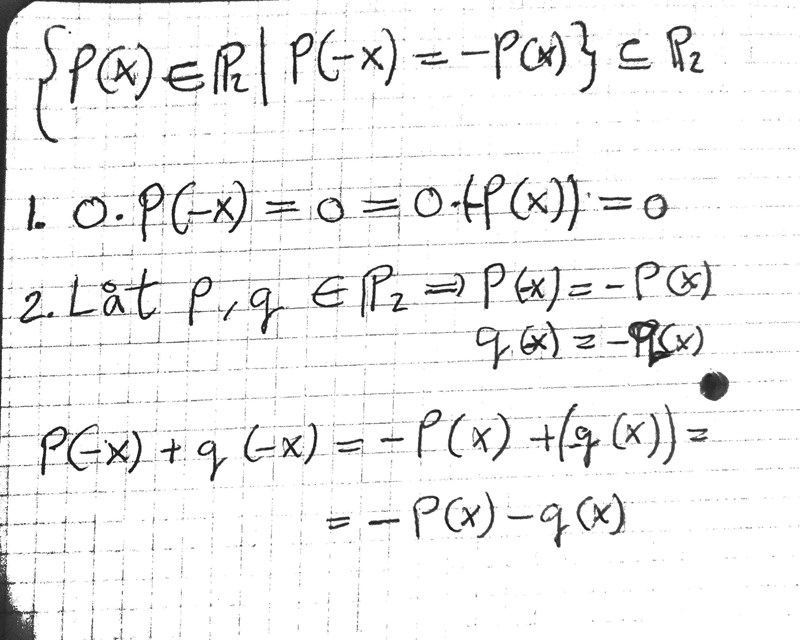 {P(x) ∈ ℙ₂ | P(-x) = -P(x)} ⊆ ℙ₂
1. 0·P(-x) = 0 = 0·(-P(x)) = 0
2. Låt P, q ∈ ℙ₂ ⇒ P(-x) = -P(x)
q(-x) = -q(x)
P(-x) + q(-x) = -P(x) + (-q(x)) =
= -P(x) - q(x)